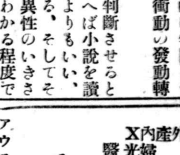 衝動の發動轉
判斷させると
へば小說を讀
よりもいい、
る、そしてそ
異性のいきさ
わかる程度で
アウ
X內產外
光婦
醫